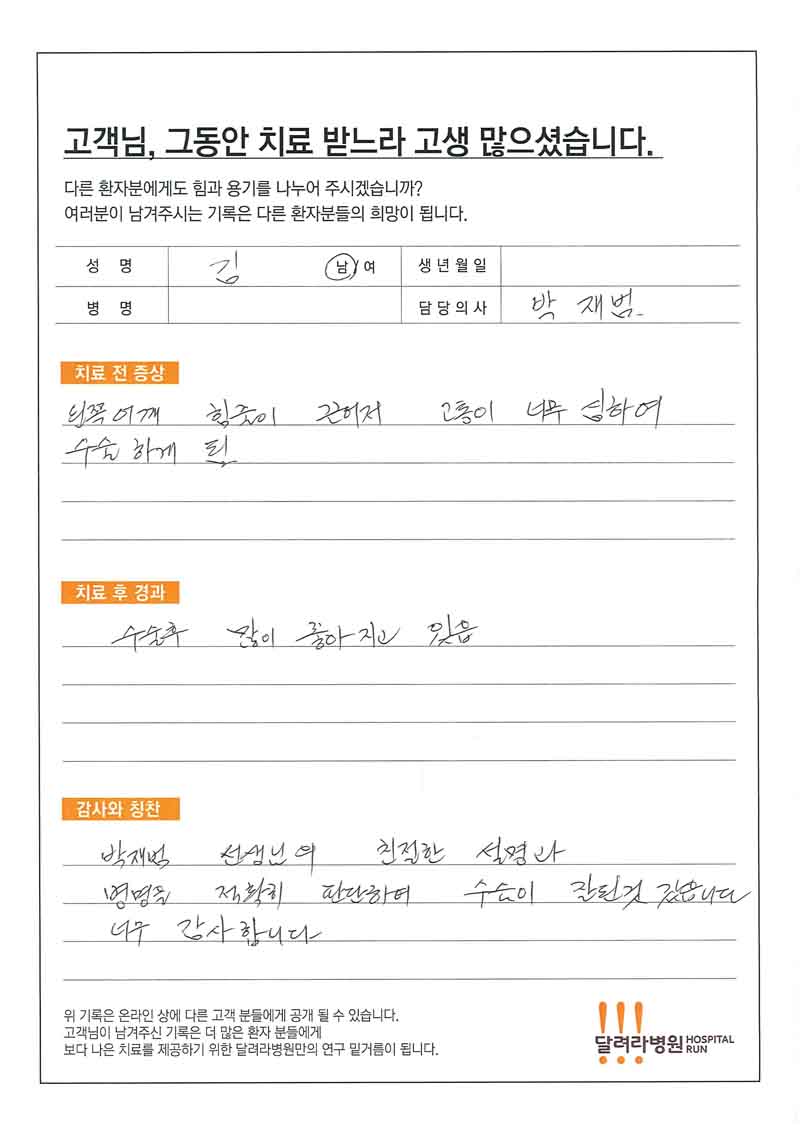 고객님, 그동안 치료 받느라 고생 많으셨습니다.
다른 환자분에게도 힘과 용기를 나누어 주시겠습니까?
여러분이 남겨주시는 기록은 다른 환자분들의 희망이 됩니다.
성 명 김 남/여 생년월일
병 명 담당의사 박 재범
치료 전 증상
왼쪽어깨 힘줄이 끈어저 고통이 너무 심하여
수술 하게 됨
치료 후 경과
수술후 많이 좋아지고 있음
감사와 칭찬
박재범 선생님의 친절한 설명과
병명을 적확히 판단하여 수술이 잘된것 같습니다
너무 감사합니다
위 기록은 온라인 상에 다른 고객 분들에게 공개 될 수 있습니다.
고객님이 남겨주신 기록은 더 많은 환자 분들에게
보다 나은 치료를 제공하기 위한 달려라병원만의 연구 밑거름이 됩니다.
달려라병원 HOSPITAL RUN